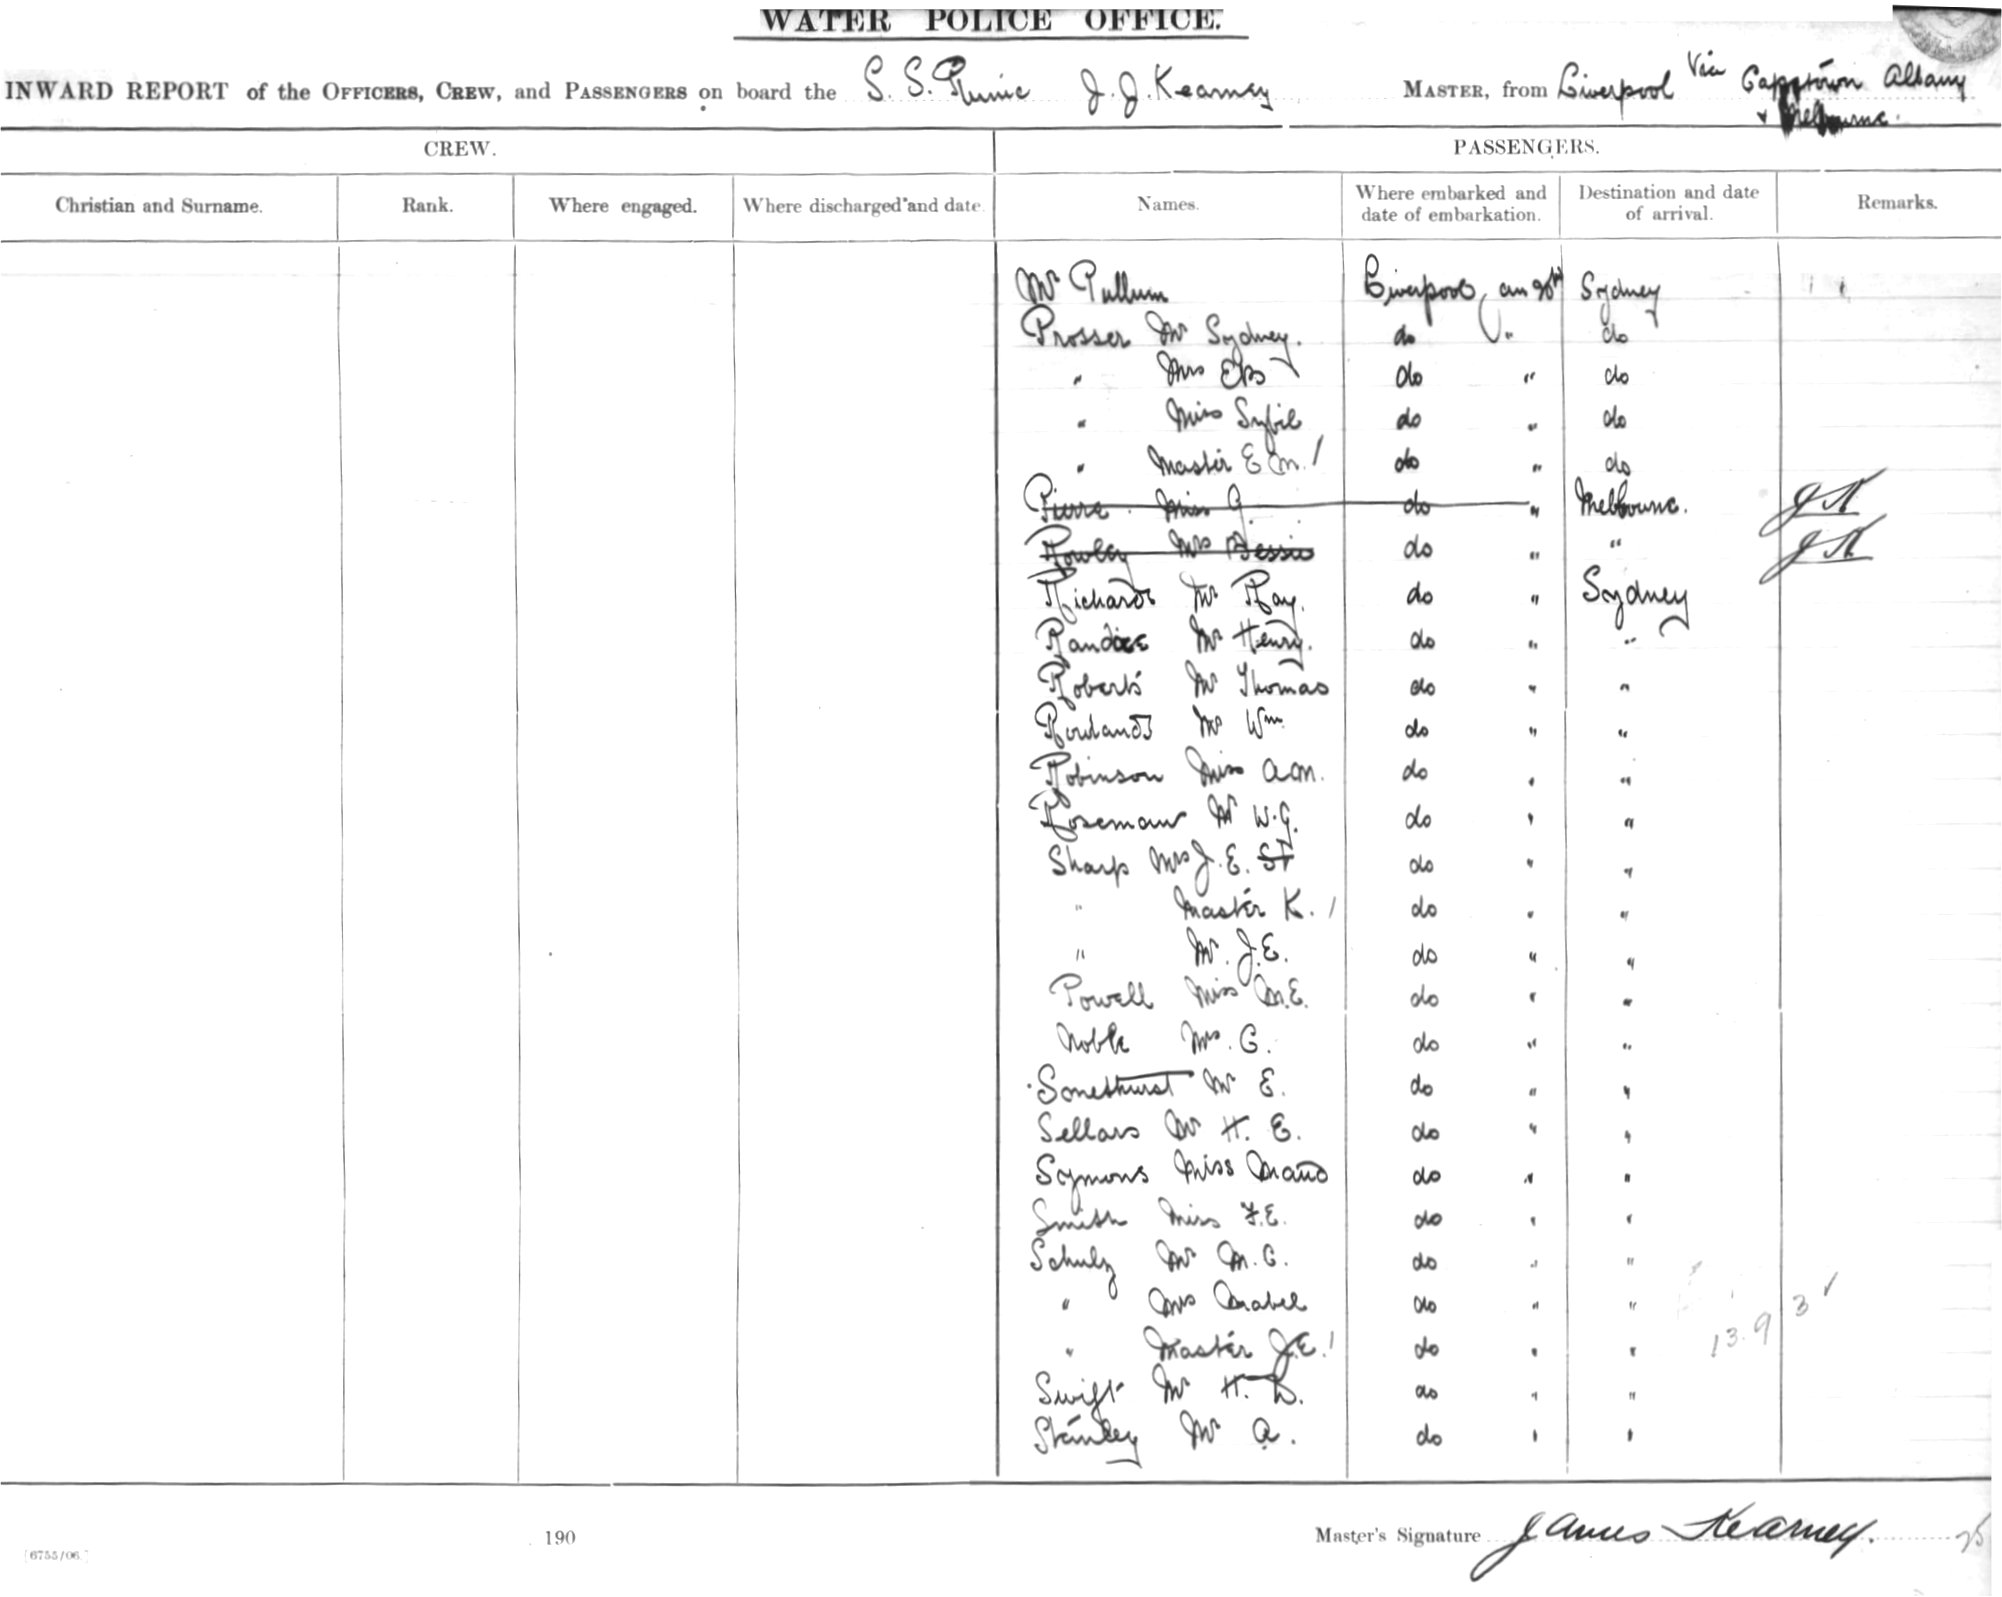 WATER POLICE OFFICE.
INWARD REPORT of the OFFICERS, CREW, and PASSENGERS on board the S. S. Runic J. J. Kearney MASTER, from Liverpool Via Capetown Albany
& Melbourne.
CREW. PASSENGERS.
Christian and Surname. Rank. Where engaged. Where discharged and date. Names. Where embarked and date of embarkation. Destination and date of arrival. Remarks.
Mr Pullum Liverpool Sydney
Prosser Mr Sydney. do " do
" Mrs do " do
" Miss Sybil do " do
" Master E M. / do " do
Pierre Miss G do " Melbourne. JK
Rowley Mrs Bessie do " " JK
Richards Mr Ray. do " Sydney
Mr Henry. do " "
Roberts Mr Thomas do " "
Rowlands Mr Wm do " "
Robinson Miss A M. do " "
Roseman Mr W. G. do " "
Sharp Mrs J. E. St do " "
" Master K. / do " "
" Mr. J. E. do " "
Powell Miss M. E. do " "
Noble Mrs. C. do " "
Mr E. do " "
Sellars Mr H. E. do " "
Symons Miss Maud do " "
Smith Miss F. E. do " "
Schulz Mr M. C. do " "
" Mrs Mabel do " "
" Master J. E. / do " " 13. 9 3 ✓
Swift Mr H. D. do " "
Stanley Mr A. do " "
190 Master's Signature James Kearney. 25
[6755/06.]